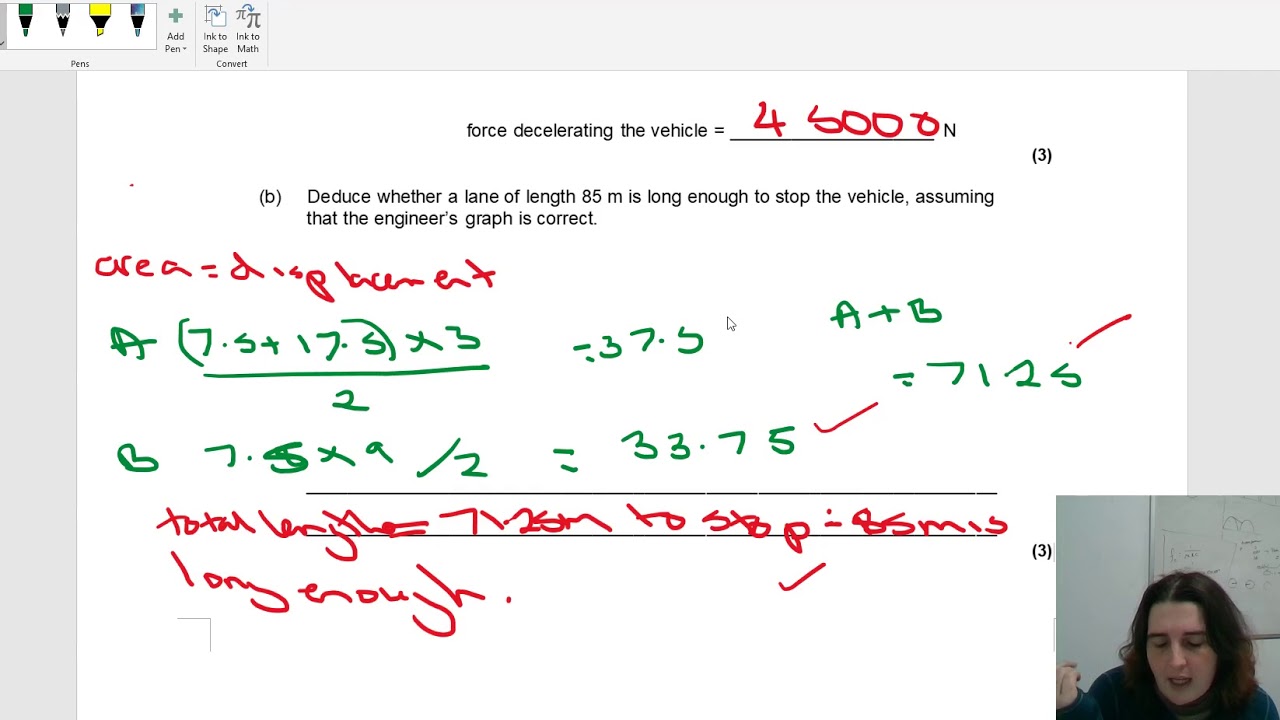 Add Pen
Ink to Shape
Ink to Math
Pens
Convert
force decelerating the vehicle = 45000 N
(3)
(b) Deduce whether a lane of length 85 m is long enough to stop the vehicle, assuming
that the engineer's graph is correct.
area = displacement
A (7.5+17.5)×3 / 2 = 37.5
A+B
= 71.25
B 7.5×9/2 = 33.75
total length = 71.25m to stop ∴ 85m is
(3)
long enough.